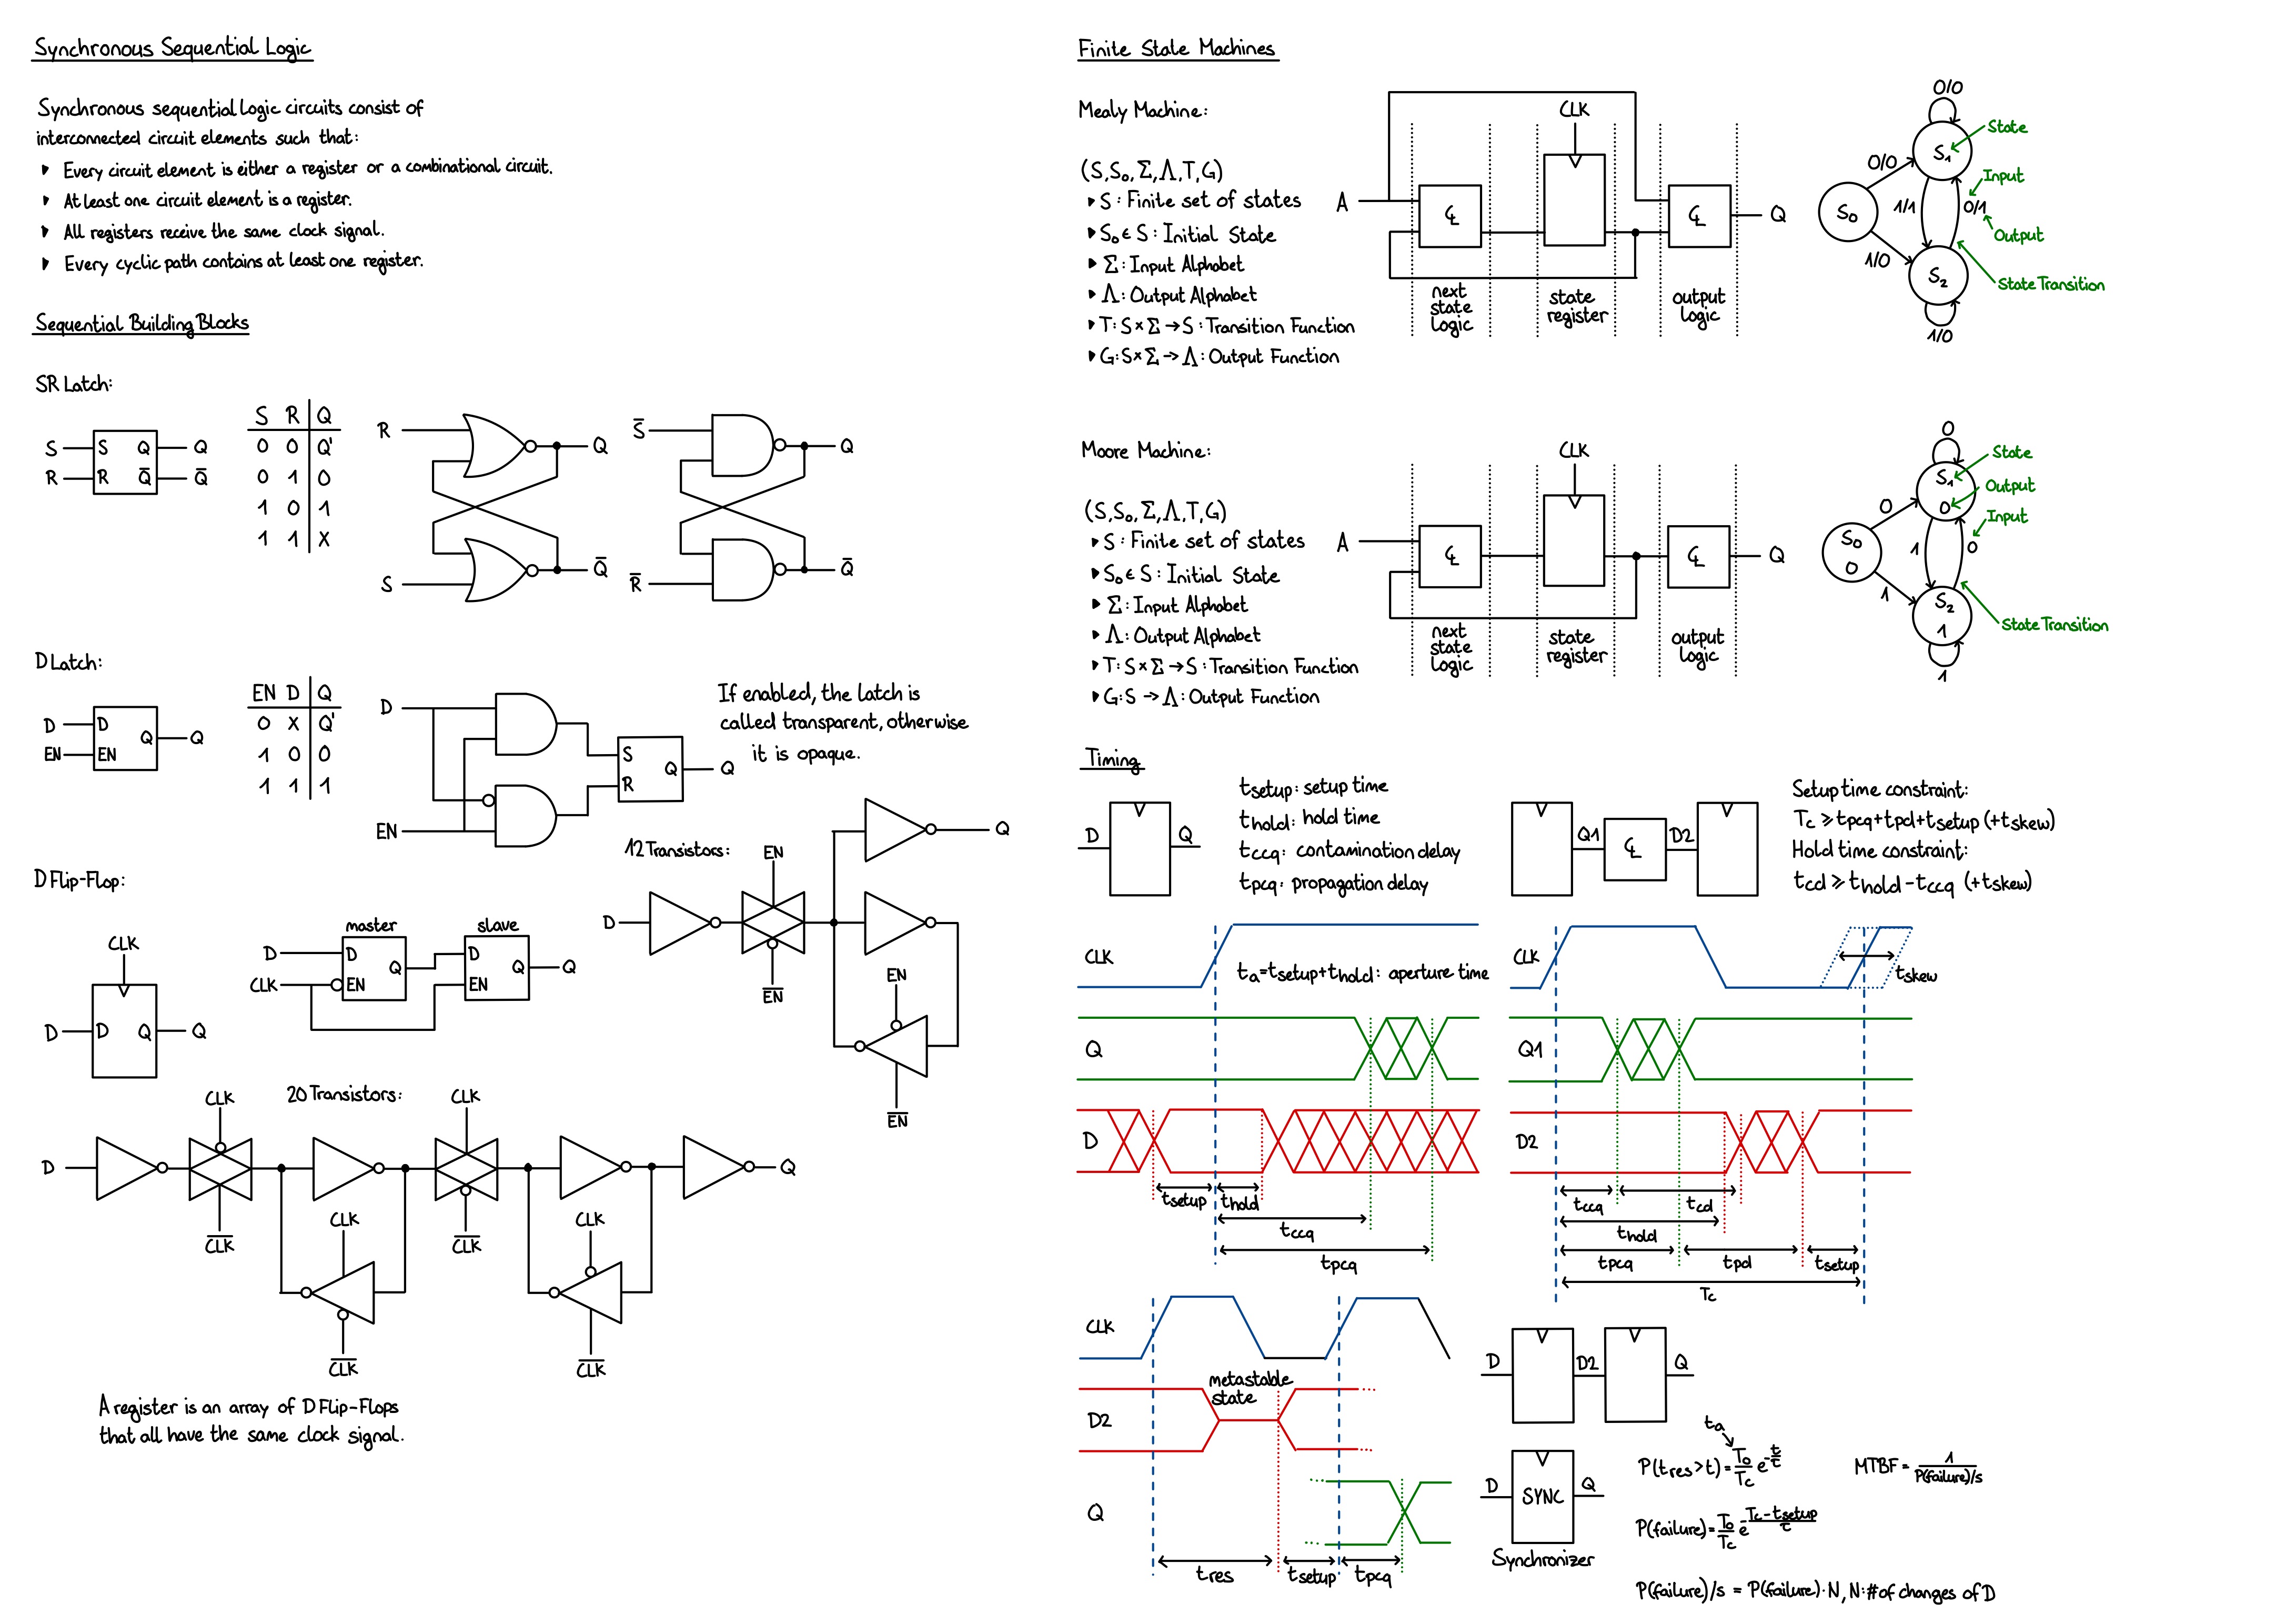 Synchronous Sequential Logic
Synchronous sequential Logic circuits consist of
interconnected circuit elements such that:
‣ Every circuit element is either a register or a combinational circuit.
‣ At least one circuit element is a register.
‣ All registers receive the same clock signal.
‣ Every cyclic path contains at least one register.
Sequential Building Blocks
SR Latch:
S S Q Q
R R Q̅ Q̅
S R Q
0 0 Q'
0 1 0
1 0 1
1 1 X
R Q
S Q̅
S̅ Q
R̅ Q̅
D Latch:
D D Q Q
EN EN
EN D Q
0 X Q'
1 0 0
1 1 1
D
EN
S
R
Q Q
If enabled, the latch is
called transparent, otherwise
it is opaque.
12 Transistors:
D
EN
E̅N̅
Q
EN
E̅N̅
D Flip-Flop:
CLK
D D Q Q
master slave
D D Q D Q Q
CLK EN EN
20 Transistors:
CLK CLK
D Q
C̅L̅K̅ C̅L̅K̅
CLK CLK
C̅L̅K̅ C̅L̅K̅
A register is an array of D Flip-Flops
that all have the same clock signal.
Finite State Machines
Mealy Machine:
(S, S₀, Σ, Λ, T, G)
‣ S : Finite set of states
‣ S₀ ∈ S : Initial State
‣ Σ : Input Alphabet
‣ Λ : Output Alphabet
‣ T : S × Σ → S : Transition Function
‣ G : S × Σ → Λ : Output Function
CLK
A CL CL Q
next
state
logic
state
register
output
logic
0/0
S₁
State
0/0
Input
S₀
1/1
0/1
Output
1/0
S₂
State Transition
1/0
Moore Machine:
(S, S₀, Σ, Λ, T, G)
‣ S : Finite set of states
‣ S₀ ∈ S : Initial State
‣ Σ : Input Alphabet
‣ Λ : Output Alphabet
‣ T : S × Σ → S : Transition Function
‣ G : S → Λ : Output Function
CLK
A CL CL Q
next
state
logic
state
register
output
logic
0
State
S₁
0
Output
0
Input
S₀
0
1
0
1
S₂
1
State Transition
1
Timing
D Q
tsetup : setup time
thold : hold time
tccq : contamination delay
tpcq : propagation delay
Q1 CL D2
Setup time constraint:
Tc ≥ tpcq + tpd + tsetup (+ tskew)
Hold time constraint:
tcd ≥ thold - tccq (+ tskew)
CLK
ta = tsetup + thold : aperture time
Q
D
tsetup thold
tccq
tpcq
CLK
tskew
Q1
D2
tccq tcd
thold
tpcq tpd tsetup
Tc
CLK
metastable
state
D2
Q
tres tsetup tpcq
D D2 Q
D SYNC Q
Synchronizer
ta
P(tres > t) = T₀/Tc e^(-t/τ)
MTBF = 1/(P(failure)/s)
P(failure) = T₀/Tc e^(-(Tc - tsetup)/τ)
P(failure)/s = P(failure) · N, N: # of changes of D